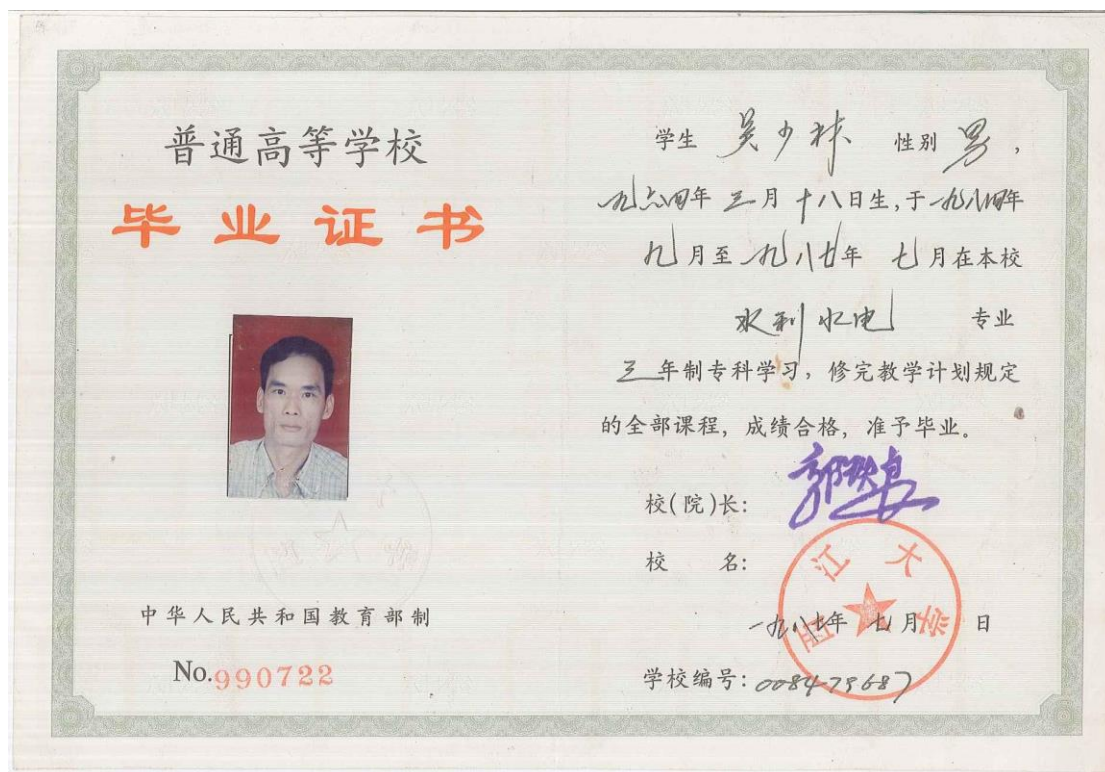 普通高等学校
毕业证书
中华人民共和国教育部制
No.990722
学生 吴少林 性别 男，
一九六四年 三月 十八日生，于一九八四年
九月至一九八七年 七月在本校
水利水电 专业
三年制专科学习，修完教学计划规定
的全部课程，成绩合格，准予毕业。
校(院)长：
校 名：
西江大学
一九八七年 七月 日
学校编号：008479687